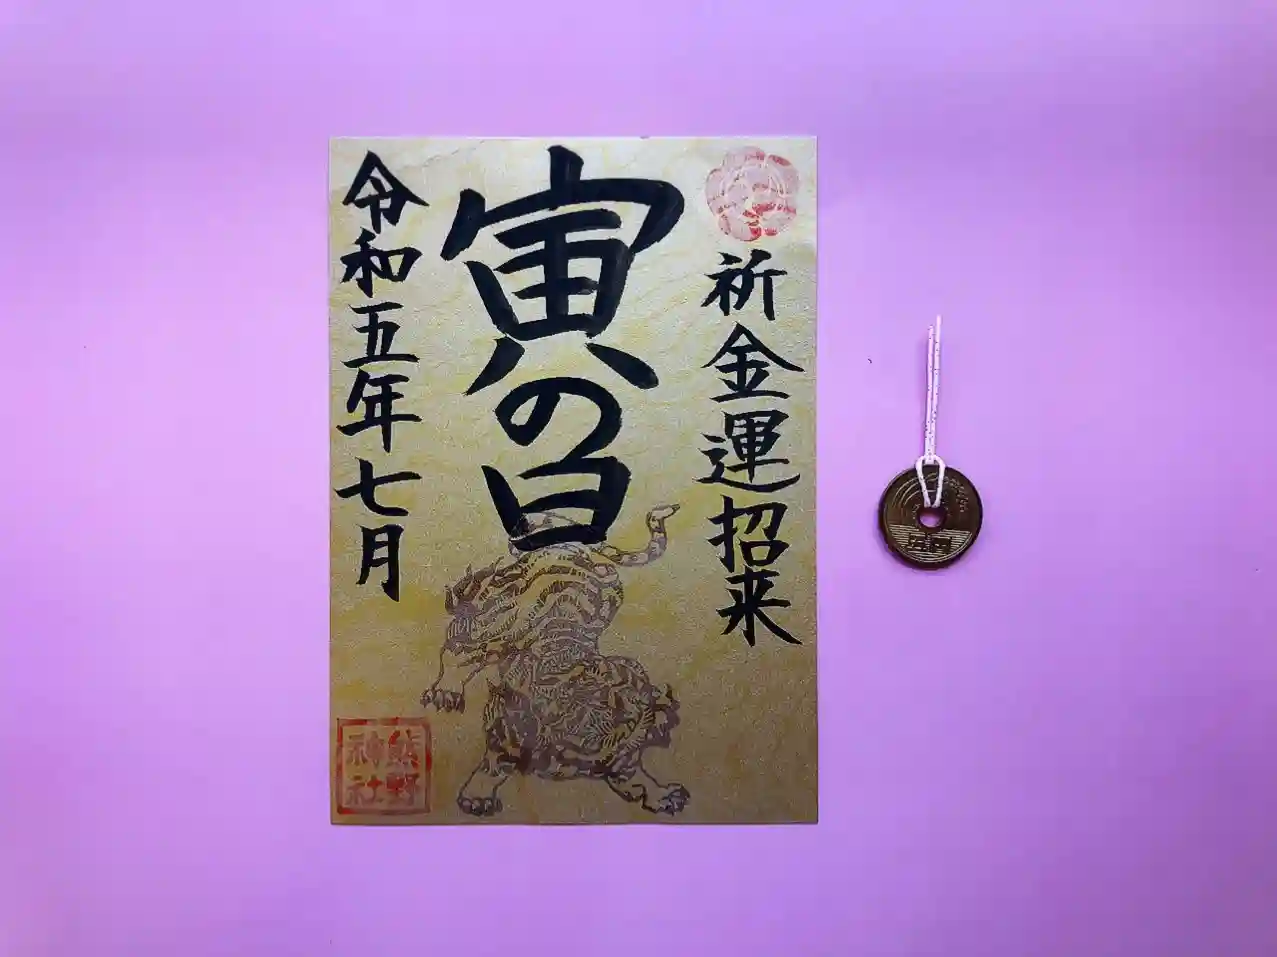 祈金運招来
寅の日
令和五年七月
熊野
神社